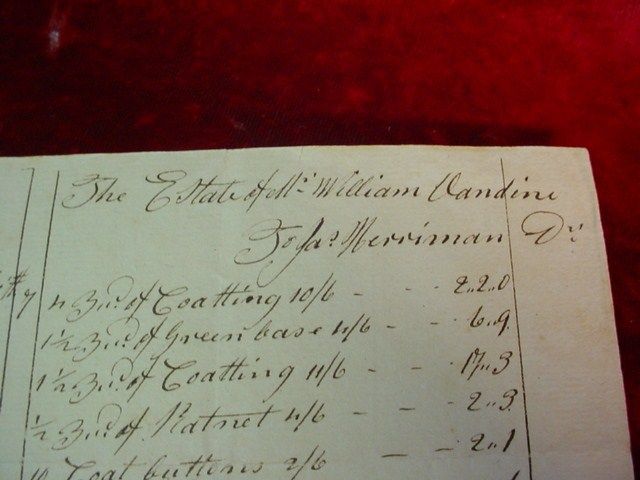 The Estate of Mr. William Vandine
To Jas. Merriman Dr.
4 Yds. of Coatting 10/6 - - 2..2..0
1½ Yds. of Green base 4/6 - - 6..9
1½ Yds. of Coatting 11/6 - - 17..3
½ Yd. of Ratnet 4/6 - - 2..3
10 Coat buttons 2/6 - - 2..1
7